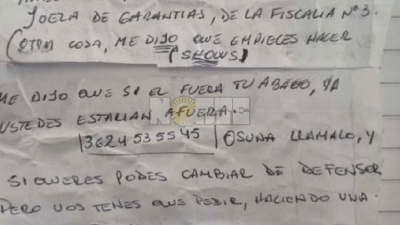 JOEZA DE GARANTIAS, DE LA FISCALIA Nº3.
(OTRA COSA, ME DIJO QUE EMPIECES HACER
(SHOWS)
ME DIJO QUE SI EL FUERA TU ABAGO, YA
USTEDES ESTARIAN AFUERA.
3624535545 OSUNA LLAMALO, Y
SI QUERES PODES CAMBIAR DE DEFENSOR
PERO VOS TENES QUE PEDIR, HACIENDO UNA